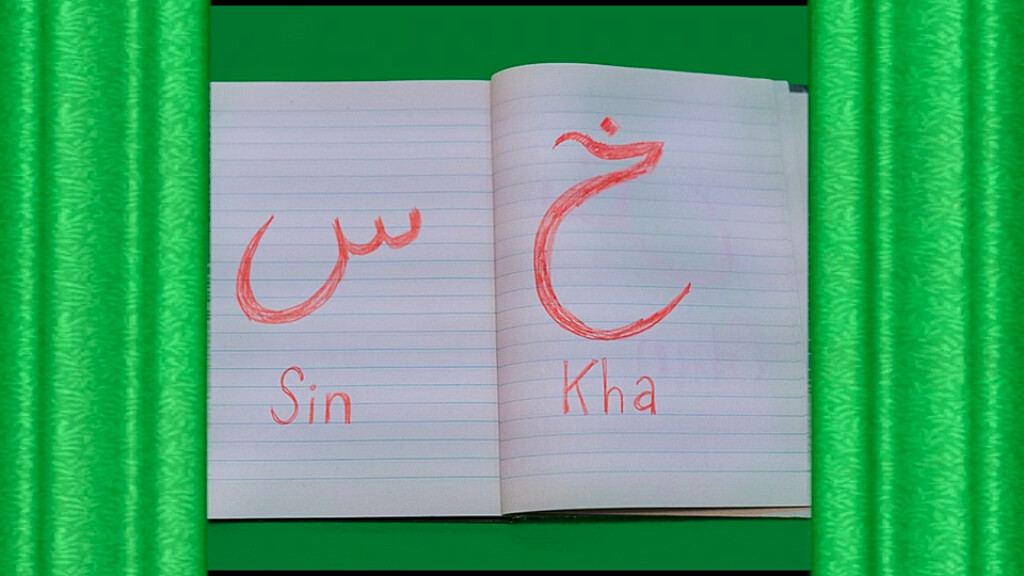 س
Sin
خ
Kha